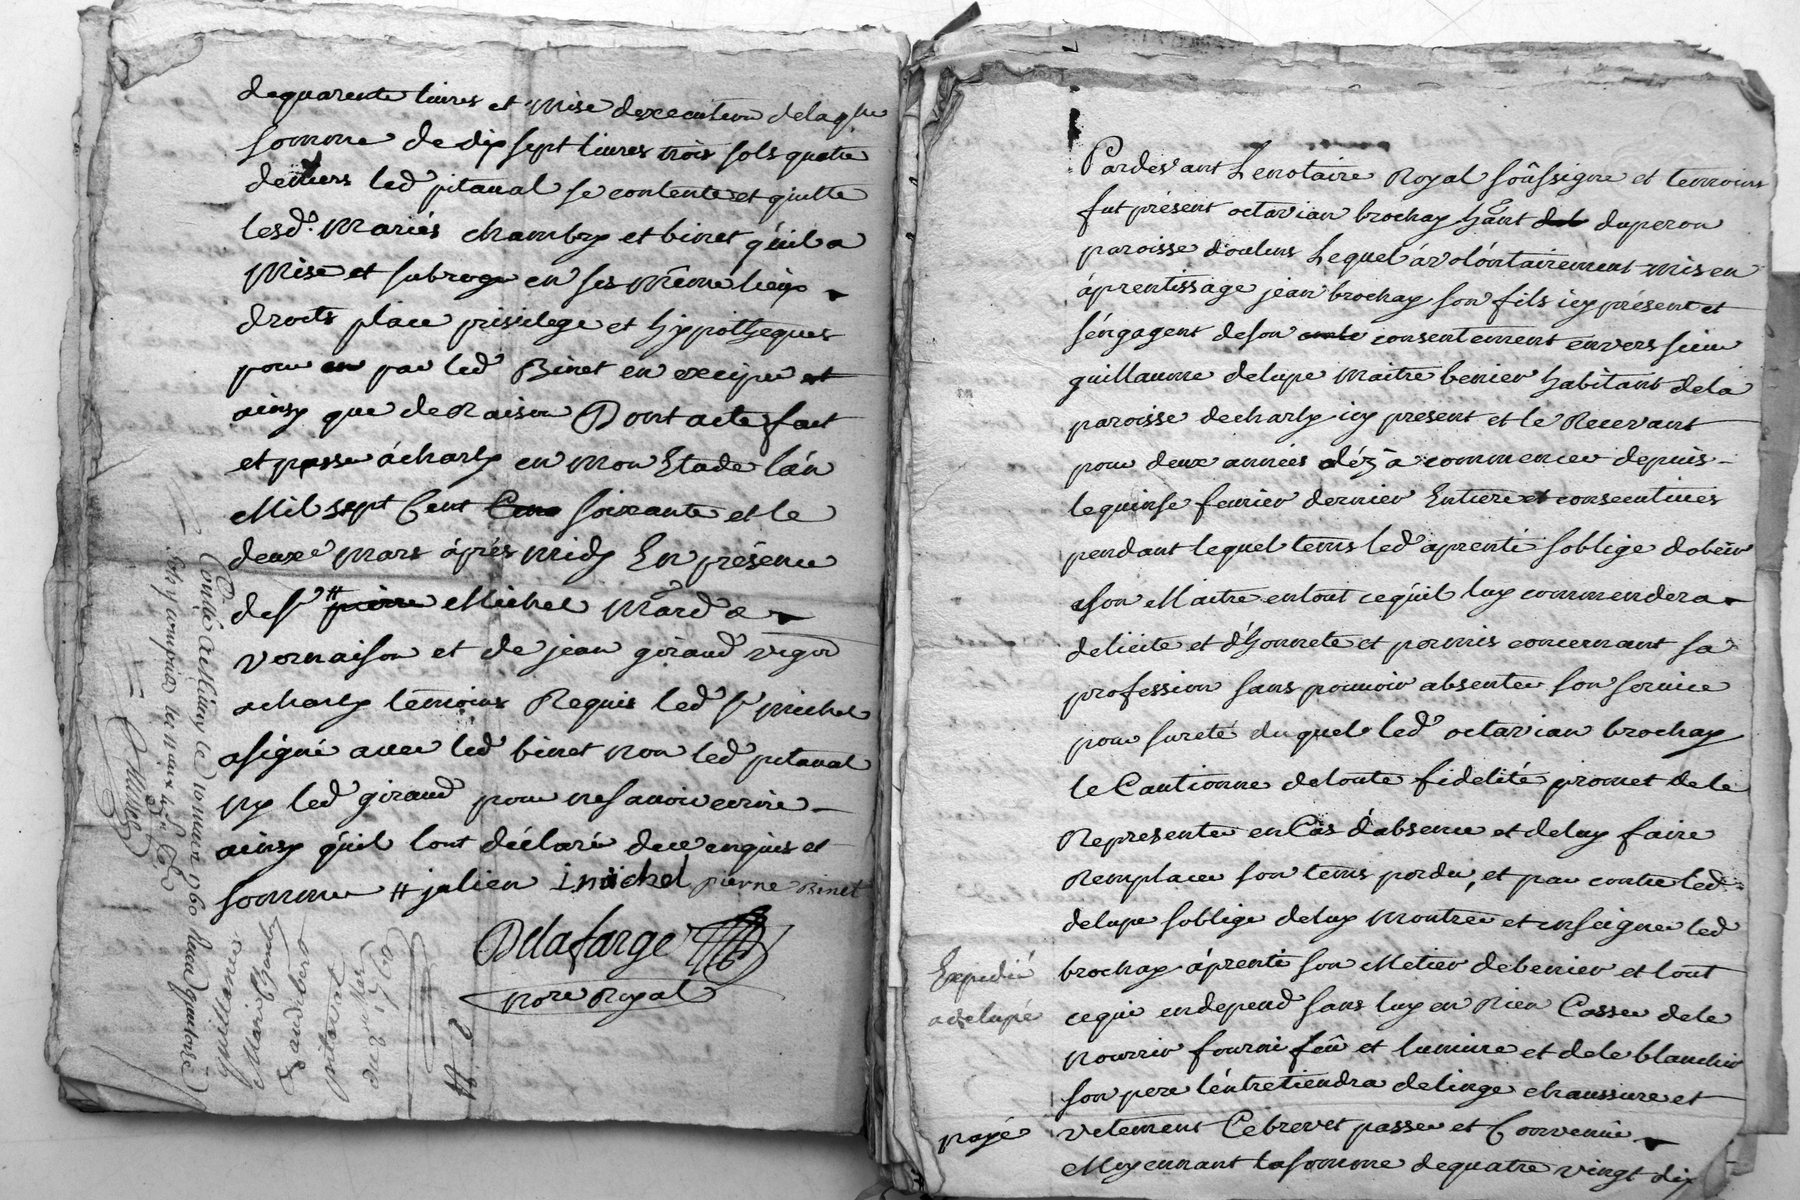 dequarente livres et mise dexecution delaqlle
somme de dix sept livres trois sols quatre
deniers led pitaval se contente et quitte
lesd. Mariés chambry et binet quil a
Mise et subroge en ses même lieux
droits place privilege et hypotheques
pour en par led Binet en exciper et
ainsy que de Raison Dont acte fait
et passe à charly en mon Etude lan
Mil sept Cent Cens soixante et le
deuxe mars aprés midy En présence
de sr # pierre Michel Mard a
vernaison et de jean giraud vigon
acharly temoins Requis led sr michel
asigné avec led binet non led pitaval
ny led giraud pour ne savoir ecrire
ainsy quil lont déclaré de ce enquis et
sommes # julien Imichel pierre Binet
Delafarge
Nore Royal
Controlé a Millery le 10 mars 1760
guillaume
Marie Chambry
pitaval
du 2 mars
1760
Pardevant Le notaire Royal soussigne et temoins
fut présent octavian brochay hant del duperon
paroisse doulins Lequel á volontairement mis en
áprentissage jean brochay son fils icy présent et
sengagent de son consentement envers sieur
guillaume delupe maitre benier habitant de la
paroisse decharly icy present et le Recevant
pour deux années déja á commencer depuis
le quinse fevrier dernier Entiere et consecutives
pendant lequel tems led aprenti soblige dobeir
a son Maitre en tout ce quil luy commendera
de licite et d'honnete et permis concernant sa
profession sans pouvoir absenter son service
pour sureté duquel led octavian brochay
le Cautionne de toute fidelité promet de le
Representer en Cas d'absence et deluy faire
Remplacer son tems perdu, et par contre led
delupe soblige deluy Montrer et enseigner led
brochay áprenti son Metier debenier et tout
ce qui en depend sans luy en Rien Casser de le
nourrir fourni feu et lumiere et de le blanchir
son pere lentretiendra delinge chaussure et
vetement Cebrevet passe et Convenu
Moyennant la somme dequatre vingt dix
Expedié
adelupé
payé